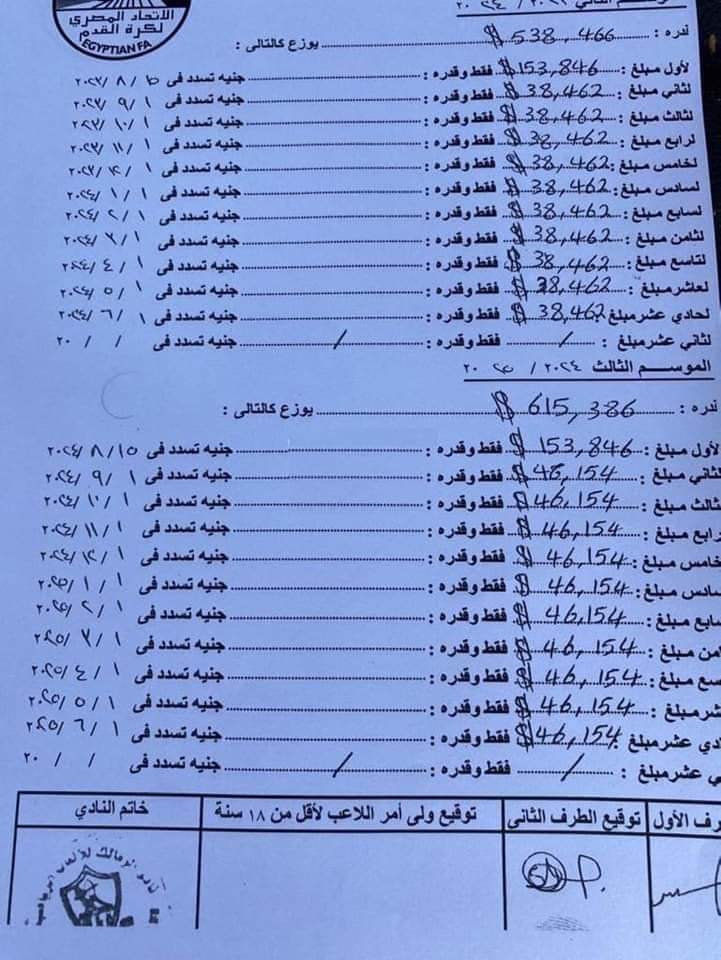 الاتحاد المصري
لكرة القدم
EGYPTIAN FA
٢٠٢٤ /
$ 538,466 يوزع كالتالى :
لأول مبلغ : $ 153,846 فقط وقدره : جنيه تسدد فى ١٥ / ٨ / ٢٠٢٣
لثاني مبلغ : $ 38,462 فقط وقدره : جنيه تسدد فى ١ / ٩ / ٢٠٢٣
لثالث مبلغ : $ 38,462 فقط وقدره : جنيه تسدد فى ١ / ١٠ / ٢٠٢٣
لرابع مبلغ : $ 38,462 فقط وقدره : جنيه تسدد فى ١ / ١١ / ٢٠٢٣
لخامس مبلغ : $ 38,462 فقط وقدره : جنيه تسدد فى ١ / ١٢ / ٢٠٢٣
لسادس مبلغ : $ 38,462 فقط وقدره : جنيه تسدد فى ١ / ١ / ٢٠٢٤
لسابع مبلغ : $ 38,462 فقط وقدره : جنيه تسدد فى ١ / ٢ / ٢٠٢٤
لثامن مبلغ : $ 38,462 فقط وقدره : جنيه تسدد فى ١ / ٣ / ٢٠٢٤
لتاسع مبلغ : $ 38,462 فقط وقدره : جنيه تسدد فى ١ / ٤ / ٢٠٢٤
لعاشر مبلغ : $ 38,462 فقط وقدره : جنيه تسدد فى ١ / ٥ / ٢٠٢٤
لحادي عشر مبلغ : $ 38,462 فقط وقدره : جنيه تسدد فى ١ / ٦ / ٢٠٢٤
لثاني عشر مبلغ : / فقط وقدره : / جنيه تسدد فى / / ٢٠
الموسم الثالث ٢٠٢٤ / ٢٠٢٥
$ 615,386 يوزع كالتالى :
لأول مبلغ : $ 153,846 فقط وقدره : جنيه تسدد فى ١٥ / ٨ / ٢٠٢٤
لثاني مبلغ : $ 46,154 فقط وقدره : جنيه تسدد فى ١ / ٩ / ٢٠٢٤
ثالث مبلغ : $ 46,154 فقط وقدره : جنيه تسدد فى ١ / ١٠ / ٢٠٢٤
رابع مبلغ : $ 46,154 فقط وقدره : جنيه تسدد فى ١ / ١١ / ٢٠٢٤
خامس مبلغ : $ 46,154 فقط وقدره : جنيه تسدد فى ١ / ١٢ / ٢٠٢٤
سادس مبلغ : $ 46,154 فقط وقدره : جنيه تسدد فى ١ / ١ / ٢٠٢٥
سابع مبلغ : $ 46,154 فقط وقدره : جنيه تسدد فى ١ / ٢ / ٢٠٢٥
من مبلغ : $ 46,154 فقط وقدره : جنيه تسدد فى ١ / ٣ / ٢٠٢٥
سع مبلغ : $ 46,154 فقط وقدره : جنيه تسدد فى ١ / ٤ / ٢٠٢٥
شر مبلغ : $ 46,154 فقط وقدره : جنيه تسدد فى ١ / ٥ / ٢٠٢٥
دي عشر مبلغ : $ 46,154 فقط وقدره : جنيه تسدد فى ١ / ٦ / ٢٠٢٥
ي عشر مبلغ : / فقط وقدره : / جنيه تسدد فى / / ٢٠
رف الأول توقيع الطرف الثانى توقيع ولى أمر اللاعب لأقل من ١٨ سنة خاتم النادي